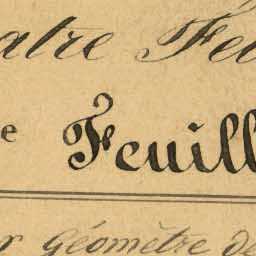 atre Fé
e Feuill
r Géomètre de